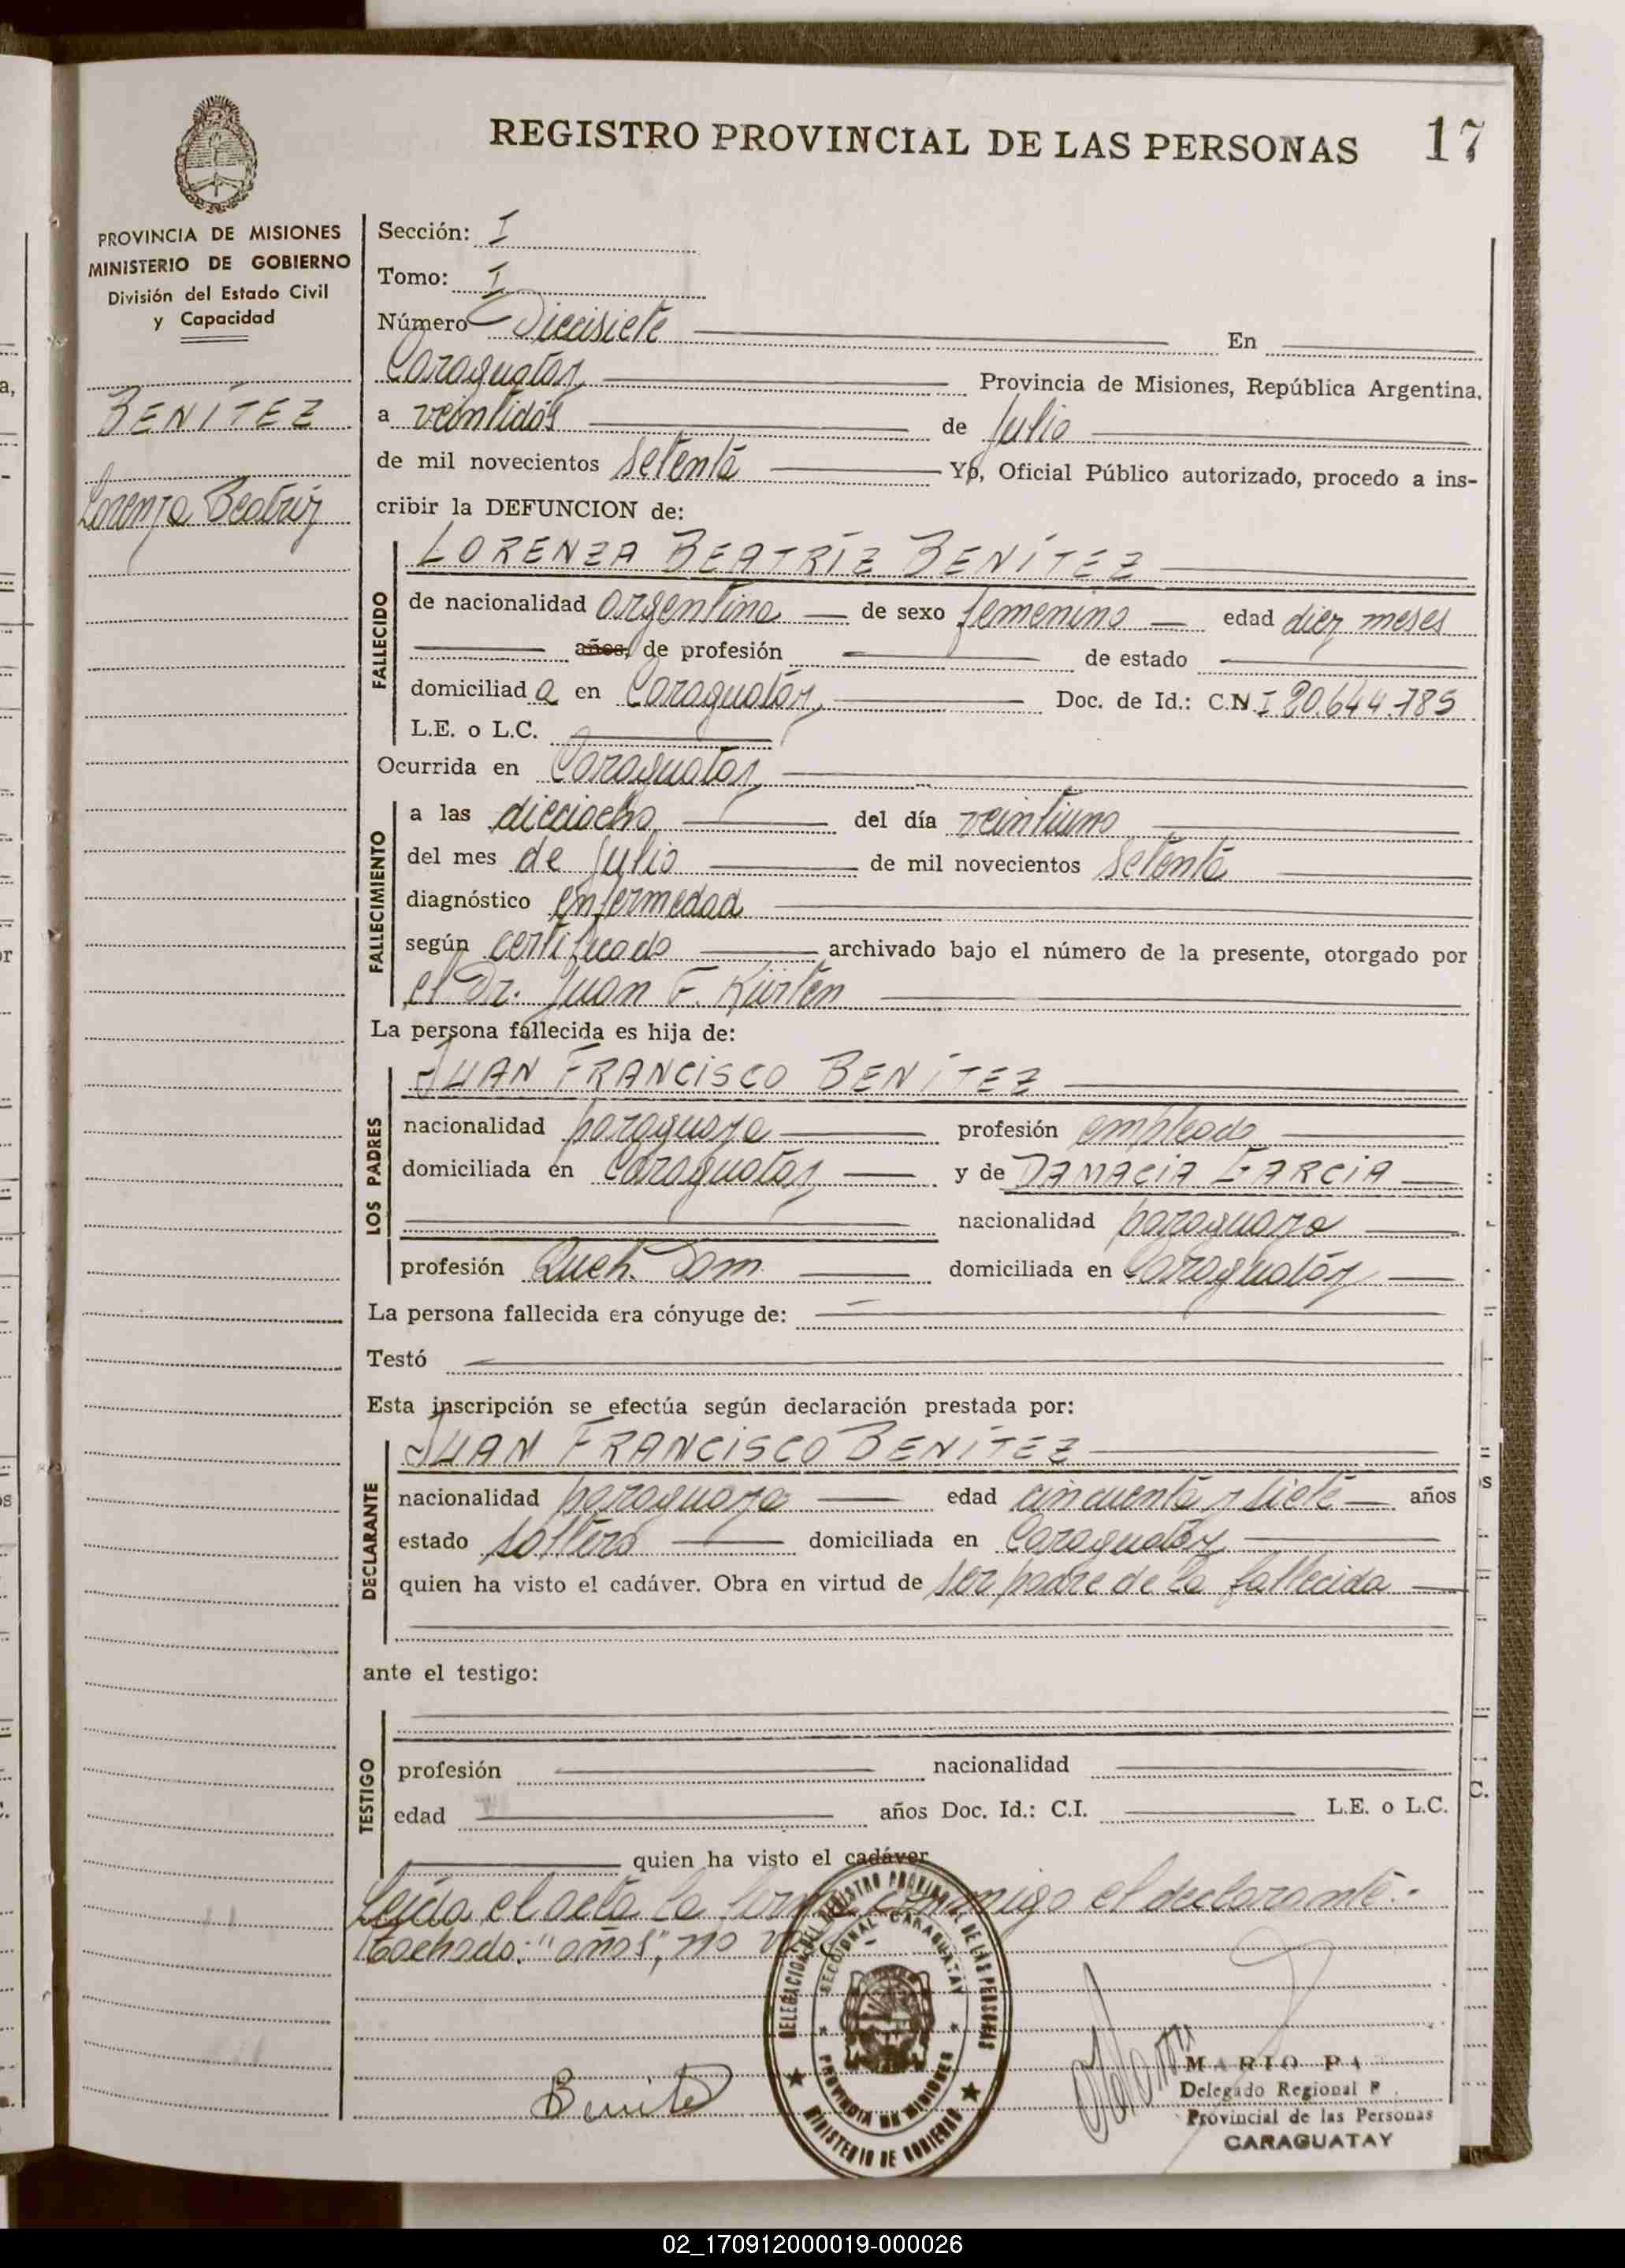 REGISTRO PROVINCIAL DE LAS PERSONAS 17
PROVINCIA DE MISIONES
MINISTERIO DE GOBIERNO
División del Estado Civil
y Capacidad
BENÍTEZ
Lorenza Beatriz
Sección: I
Tomo: I
Número Diecisiete En
Caraguatay Provincia de Misiones, República Argentina,
a veintidós de julio
de mil novecientos setenta Yo, Oficial Público autorizado, procedo a ins-
cribir la DEFUNCION de:
LORENZA BEATRÍZ BENÍTEZ
FALLECIDO
de nacionalidad argentina de sexo femenino edad diez meses
años, de profesión de estado
domiciliad a en Caraguatay Doc. de Id.: C.N.I 20.644.785
L.E. o L.C.
Ocurrida en Caraguatay
FALLECIMIENTO
a las dieciocho del día veintiuno
del mes de julio de mil novecientos setenta
diagnóstico enfermedad
según certificado archivado bajo el número de la presente, otorgado por
el Dr. Juan F. Kürten
La persona fallecida es hija de:
LOS PADRES
JUAN FRANCISCO BENÍTEZ
nacionalidad paraguaya profesión empleado
domiciliada en Caraguatay y de DAMACIA GARCIA
nacionalidad paraguaya
profesión Queh. Dom. domiciliada en Caraguatay
La persona fallecida era cónyuge de:
Testó
Esta inscripción se efectúa según declaración prestada por:
DECLARANTE
JUAN FRANCISCO BENÍTEZ
nacionalidad paraguaya edad cincuenta y siete años
estado soltero domiciliada en Caraguatay
quien ha visto el cadáver. Obra en virtud de ser padre de la fallecida
ante el testigo:
TESTIGO
profesión nacionalidad
edad años Doc. Id.: C.I. L.E. o L.C.
quien ha visto el cadáver
Leída el acta la firma conmigo el declarante.-
Tachado: "años", no vale.-
DELEGACION DEL REGISTRO PROVINCIAL DE LAS PERSONAS
SECCIONAL CARAGUATAY
PROVINCIA DE MISIONES
MINISTERIO DE GOBIERNO
Benitez
MARIO PA
Delegado Regional R
Provincial de las Personas
CARAGUATAY
02_170912000019-000026